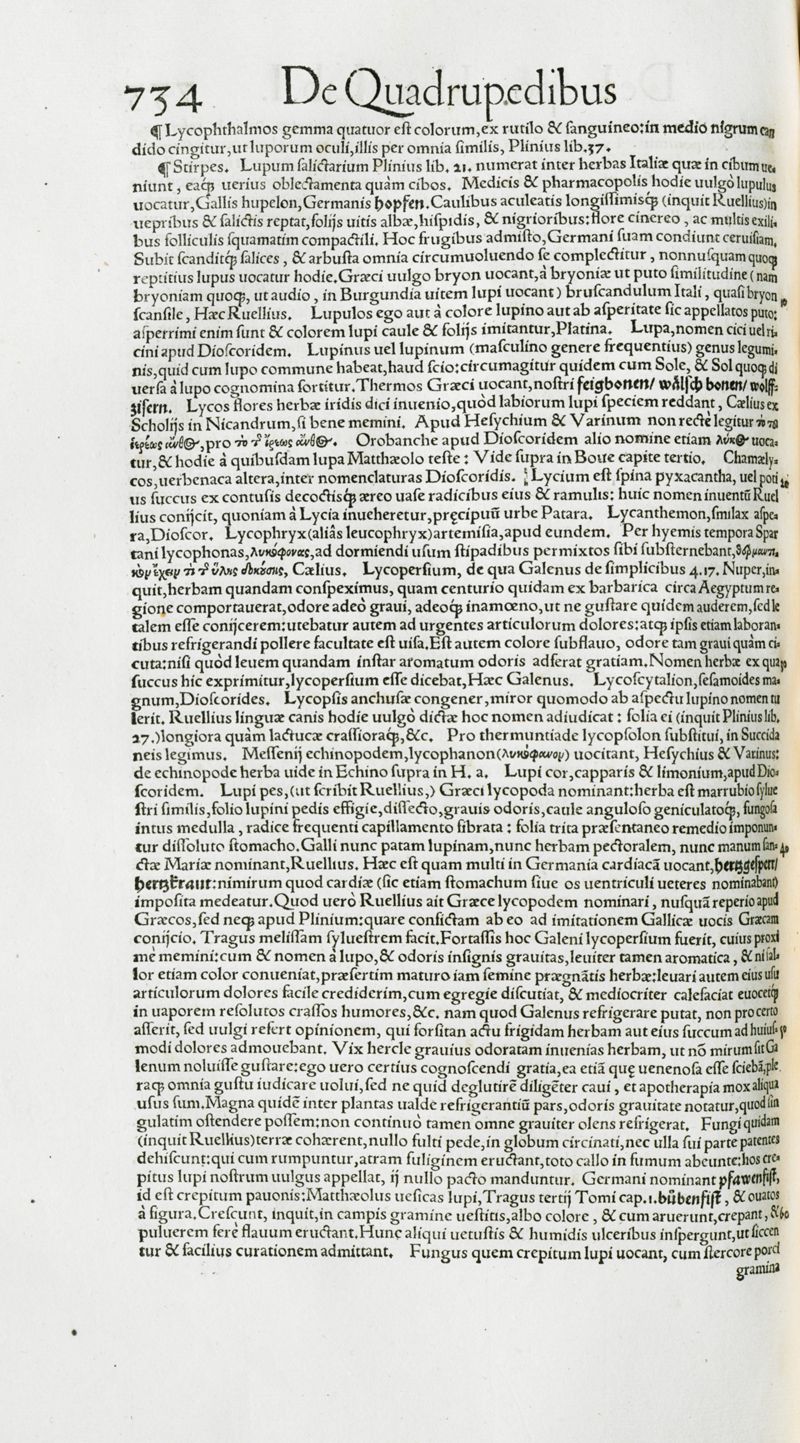 734 De Quadrupedibus
¶ Lycophthalmos gemma quatuor est colorum, ex rutilo & sanguineo: in medio nigrum can
dido cingitur, ut luporum oculi, illis per omnia similis, Plinius lib. 37.
¶ Stirpes. Lupum salictarium Plinius lib. 21. numerat inter herbas Italiæ quæ in cibum ue-
niunt, eaq; uerius oblectamenta quàm cibos. Medicis & pharmacopolis hodie uulgò lupulus
uocatur, Gallis hupelon, Germanis hopfen. Caulibus aculeatis longissimisq; (inquit Ruellius) in
uepribus & salictis reptat, folijs uitis albæ, hispidis, & nigrioribus: flore cinereo, ac multis exili-
bus folliculis squamatim compactili. Hoc frugibus admisto, Germani suam condiunt ceruisiam.
Subit scanditq; salices, & arbusta omnia circumuoluendo se complectitur, nonnusquam quoq;
reptitius lupus uocatur hodie. Græci uulgo bryon uocant, à bryoniæ ut puto similitudine (nam
bryoniam quoq;, ut audio, in Burgundia uitem lupi uocant) bruscandulum Itali, quasi bryon 10
scansile, Hæc Ruellius. Lupulos ego aut à colore lupino aut ab asperitate sic appellatos puto:
asperrimi enim sunt & colorem lupi caule & folijs imitantur, Platina. Lupa, nomen cici uel ri-
cini apud Dioscoridem. Lupinus uel lupinum (masculino genere frequentius) genus legumi-
nis, quid cum lupo commune habeat, haud scio: circumagitur quidem cum Sole, & Sol quoq; di
uersa à lupo cognomina sortitur. Thermos Græci uocant, nostri feigbonen/ wålsch bonen/ wolff-
zisern. Lycos flores herbæ iridis dici inuenio, quòd labiorum lupi speciem reddant, Cælius ex
Scholijs in Nicandrum, si bene memini. Apud Hesychium & Varinum non rectè legitur
pro Orobanche apud Dioscoridem alio nomine etiam λύκος uoca-
tur, & hodie à quibusdam lupa Matthæolo teste: Vide supra in Boue capite tertio. Chamæly-
cos, uerbenaca altera, inter nomenclaturas Dioscoridis. Lycium est spina pyxacantha, uel poti 20
us succus ex contusis decoctisq; æreo uase radicibus eius & ramulis: huic nomen inuentũ Ruel
lius conijcit, quoniam à Lycia inueheretur, pręcipuũ urbe Patara. Lycanthemon, smilax aspe-
ra, Dioscor. Lycophryx (aliâs leucophryx) artemisia, apud eundem. Per hyemis tempora Spar
tani lycophonas, λυκόφονας, ad dormiendi usum stipadibus permixtos sibi substernebant,
Cælius. Lycopersium, de qua Galenus de simplicibus 4.17. Nuper, in-
quit, herbam quandam conspeximus, quam centurio quidam ex barbarica circa Aegyptum re-
gione comportauerat, odore adeò graui, adeoq; inamœno, ut ne gustare quidem auderem, sed le
talem esse conijcerem: utebatur autem ad urgentes articulorum dolores: atq; ipsis etiam laboran-
tibus refrigerandi pollere facultate est uisa. Est autem colore subflauo, odore tam graui quàm ci-
cuta: nisi quòd leuem quandam instar aromatum odoris adferat gratiam. Nomen herbæ ex qua 30
succus hic exprimitur, lycopersium esse dicebat, Hæc Galenus. Lycoscytalion, sesamoides ma-
gnum, Dioscorides. Lycopsis anchusæ congener, miror quomodo ab aspectu lupino nomen tu
lerit. Ruellius linguæ canis hodie uulgò dictæ hoc nomen adiudicat: folia ei (inquit Plinius lib.
27.) longiora quàm lactucæ crassioraq;, &c. Pro thermuntiade lycopsolon substitui, in Succida
neis legimus. Messenij echinopodem, lycophanon (λυκόφανον) uocitant, Hesychius & Varinus:
de echinopode herba uide in Echino supra in H. a. Lupi cor, capparis & limonium, apud Dio-
scoridem. Lupi pes, (ut scribit Ruellius,) Græci lycopoda nominant: herba est marrubio sylue
stri similis, folio lupini pedis effigie, dissecto, grauis odoris, caule anguloso geniculatoq;, fungosa
intus medulla, radice frequenti capillamento fibrata: folia trita præsentaneo remedio imponun-
tur dissoluto stomacho. Galli nunc patam lupinam, nunc herbam pectoralem, nunc manum san- 40
ctæ Mariæ nominant, Ruellius. Hæc est quam multi in Germania cardiacã uocant, hertzgesperr/
hertzkraut: nimirum quod cardiæ (sic etiam stomachum siue os uentriculi ueteres nominabant)
imposita medeatur. Quod uerò Ruellius ait Græce lycopodem nominari, nusquã reperio apud
Græcos, sed neq; apud Plinium: quare confictam ab eo ad imitationem Gallicæ uocis Græcam
conijcio. Tragus melissam syluestrem facit. Fortassis hoc Galeni lycopersium fuerit, cuius proxi
mè memini: cum & nomen à lupo, & odoris insignis grauitas, leuiter tamen aromatica, & ni fal-
lor etiam color conueniat, præsertim maturo iam semine prægnãtis herbæ: leuari autem eius usu
articulorum dolores facile crediderim, cum egregie discutiat, & mediocriter calefaciat euocetq;
in uaporem resolutos crassos humores, &c. nam quod Galenus refrigerare putat, non pro certo
asserit, sed uulgi refert opinionem, qui forsitan actu frigidam herbam aut eius succum ad huius- 50
modi dolores admouebant. Vix hercle grauius odoratam inuenias herbam, ut nõ mirum sit Ga
lenum noluisse gustare: ego uero certius cognoscendi gratia, ea etiã quę uenenosa esse sciebã, ple
raq; omnia gustu iudicare uolui, sed ne quid deglutirẽ diligẽter caui, et apotherapia mox aliqua
usus sum. Magna quidẽ inter plantas ualde refrigerantiũ pars, odoris grauitate notatur, quod sin
gulatim ostendere possem: non continuò tamen omne grauiter olens refrigerat. Fungi quidam
(inquit Ruellius) terræ cohærent, nullo fulti pede, in globum circinati, nec ulla sui parte patentes
dehiscunt: qui cum rumpuntur, atram fuliginem eructant, toto callo in fumum abeunte: hos cre-
pitus lupi nostrum uulgus appellat, ij nullo pacto manduntur. Germani nominant pfawenfist,
id est crepitum pauonis: Matthæolus uesicas lupi, Tragus tertij Tomi cap. 1. bübenfist, & ouatos
à figura. Crescunt, inquit, in campis gramine uestitis, albo colore, & cum aruerunt, crepant, & 60
puluerem ferè flauum eructant. Hunc aliqui uetustis & humidis ulceribus inspergunt, ut siccen
tur & facilius curationem admittant. Fungus quem crepitum lupi uocant, cum stercore porci
gramina